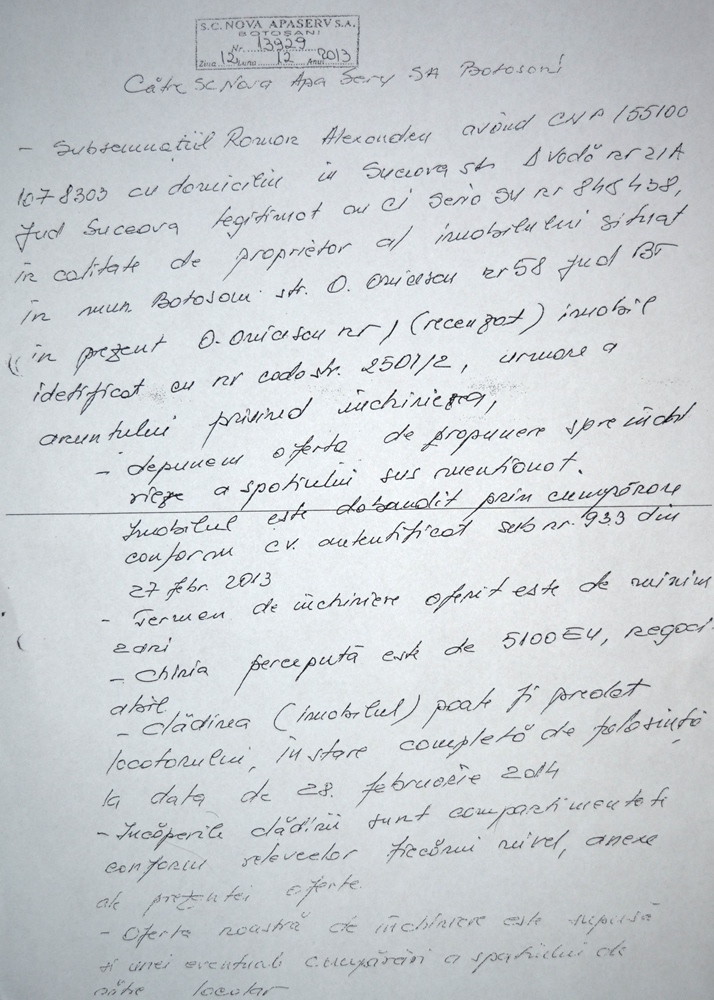 S.C. NOVA APASERV S.A.
BOTOSANI
Nr. 13929
Ziua 12 Luna 12 Anul 2013
Către SC Nova Apa Serv SA Botosani
- Subsemnatul Roman Alexandru având CNP 155100
1078303 cu domiciliu in Suceava str D Vodă nr 21A
jud Suceava legitimat cu Ci Seria SV nr 845438,
în calitate de proprietar al imobilului situat
în mun Botosani str. O. Onicescu nr 58 jud BT
în prezent O. Onicescu nr 1 (recenzat) imobil
idetificat cu nr cadastr. 2501/2, urmare a
anuntului privind inchirierea,
- depunem oferta de propunere spre inchi
riere a spatiului sus mentionat.
Imobilul este dobandit prin cumpărare
conform cv. autentificat sub nr. 933 din
27 febr. 2013
- Termen de inchiriere oferit este de minim
2 ani
- Chiria percepută este de 5100 EU, negoci
abil
- Clădirea (imobilul) poate fi predat
locatorului, în stare completă de folosință
la data de 28. februarie 2014
- Incăperile clădirii sunt compartimentati
conform releveelor fiecărui nivel, anexe
ale prezentei oferte.
- Oferta noastră de inchiriere este supusă
si unei eventuale cumpărări a spatiului de
către locator